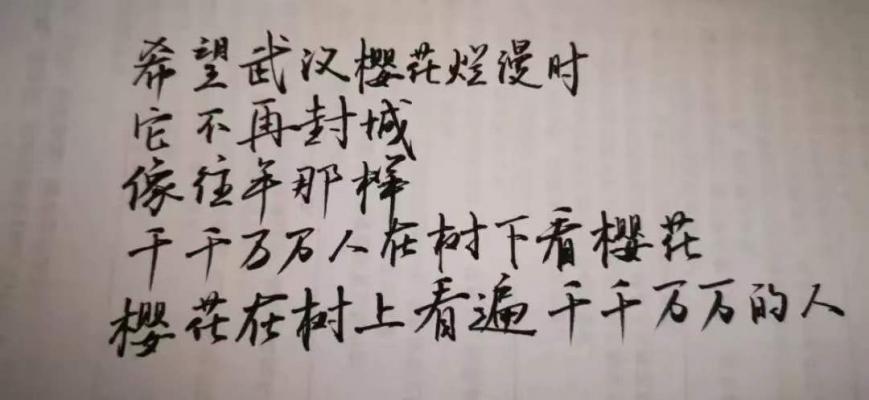 希望武汉樱花烂漫时
它不再封城
像往年那样
千千万万人在树下看樱花
樱花在树上看遍千千万万的人